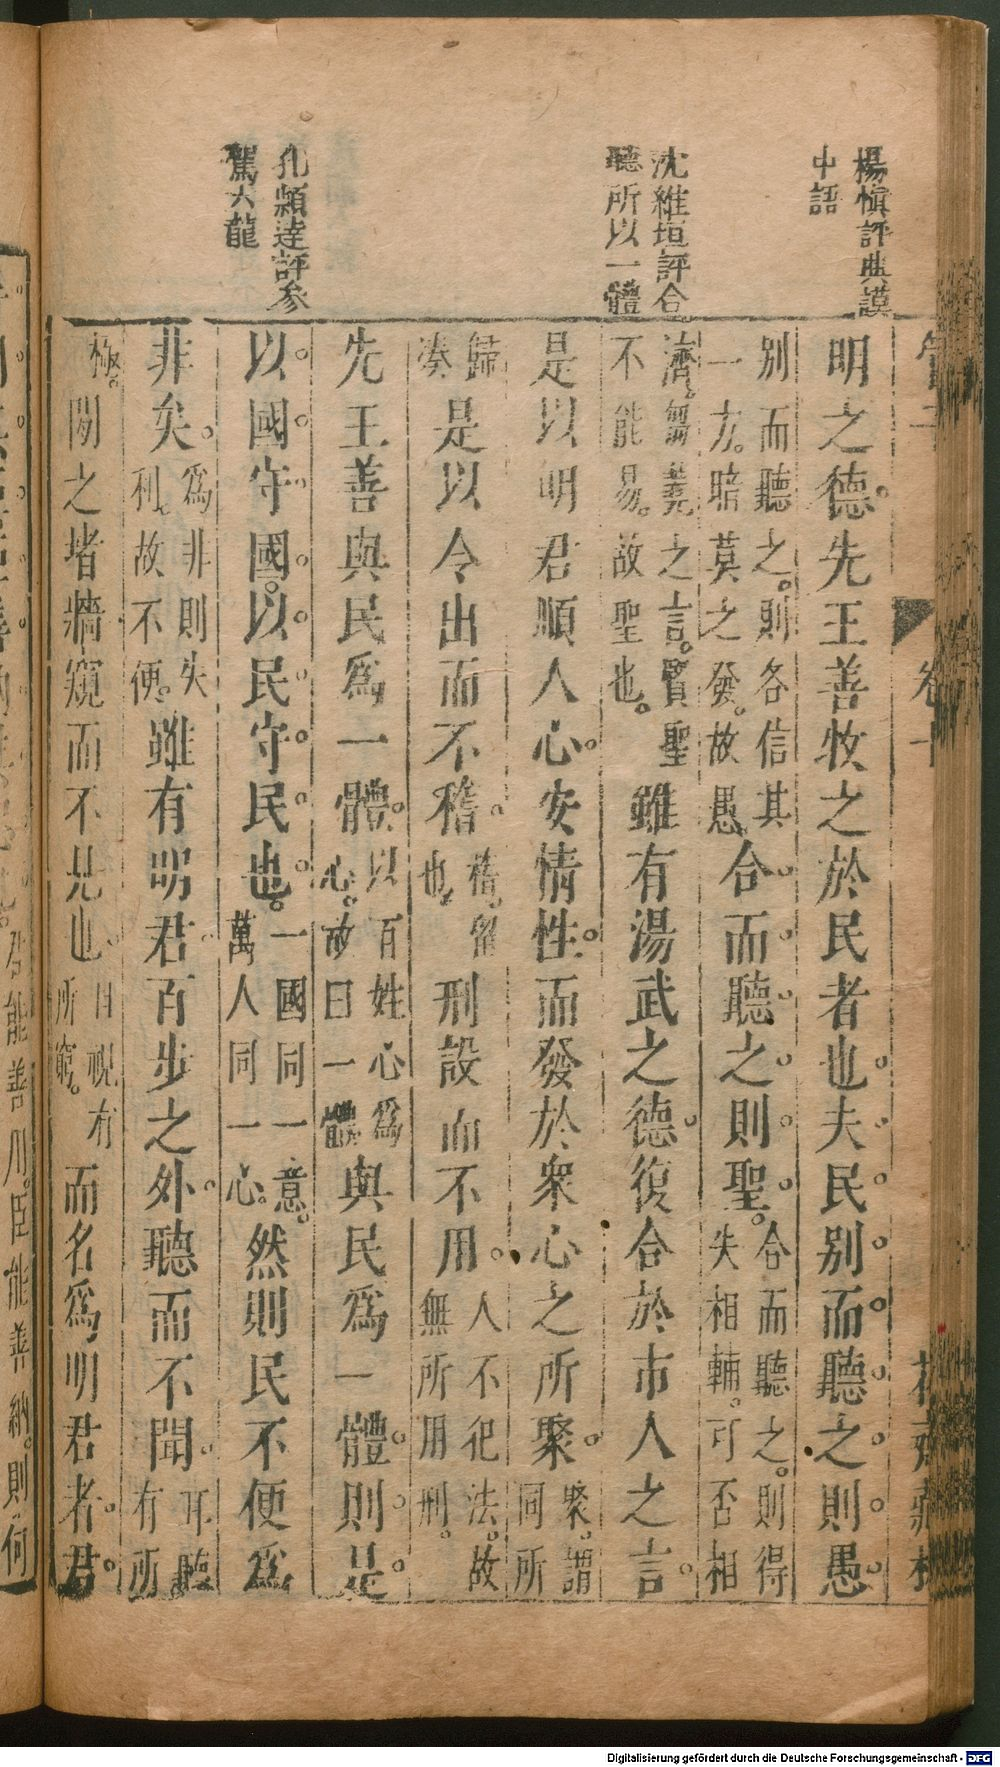 楊慎評典謨
中語
沈維垣評合
聽所以一體
孔頴逹評參
駕六龍
管子
卷十
花齋藏板
明之德先王善牧之於民者也夫民别而聽之則愚
别而聽之則各信其
一方暗莫之發故愚
合而聽之則聖
合而聽之則得
失相輔可否相
濟芻蕘之言賢聖
不能易故聖也
雖有湯武之德復合於市人之言
是以明君順人心安情性而發於衆心之所聚
聚謂
同所
歸
湊
是以令出而不稽
稽留
也
刑設而不用
人不犯法故
無所用刑
先王善與民爲一體
以百姓心爲
心故曰一體
與民爲一體則是
以國守國以民守民也
一國同一意
萬人同一心
然則民不便爲
非矣
爲非則失
利故不便
雖有明君百步之外聽而不聞
耳聽
有所
極
閒之堵牆窺而不見也
目視有
所窮
而名爲明君者君
能善用臣能善納則何
Digitalisierung gefördert durch die Deutsche Forschungsgemeinschaft - DFG